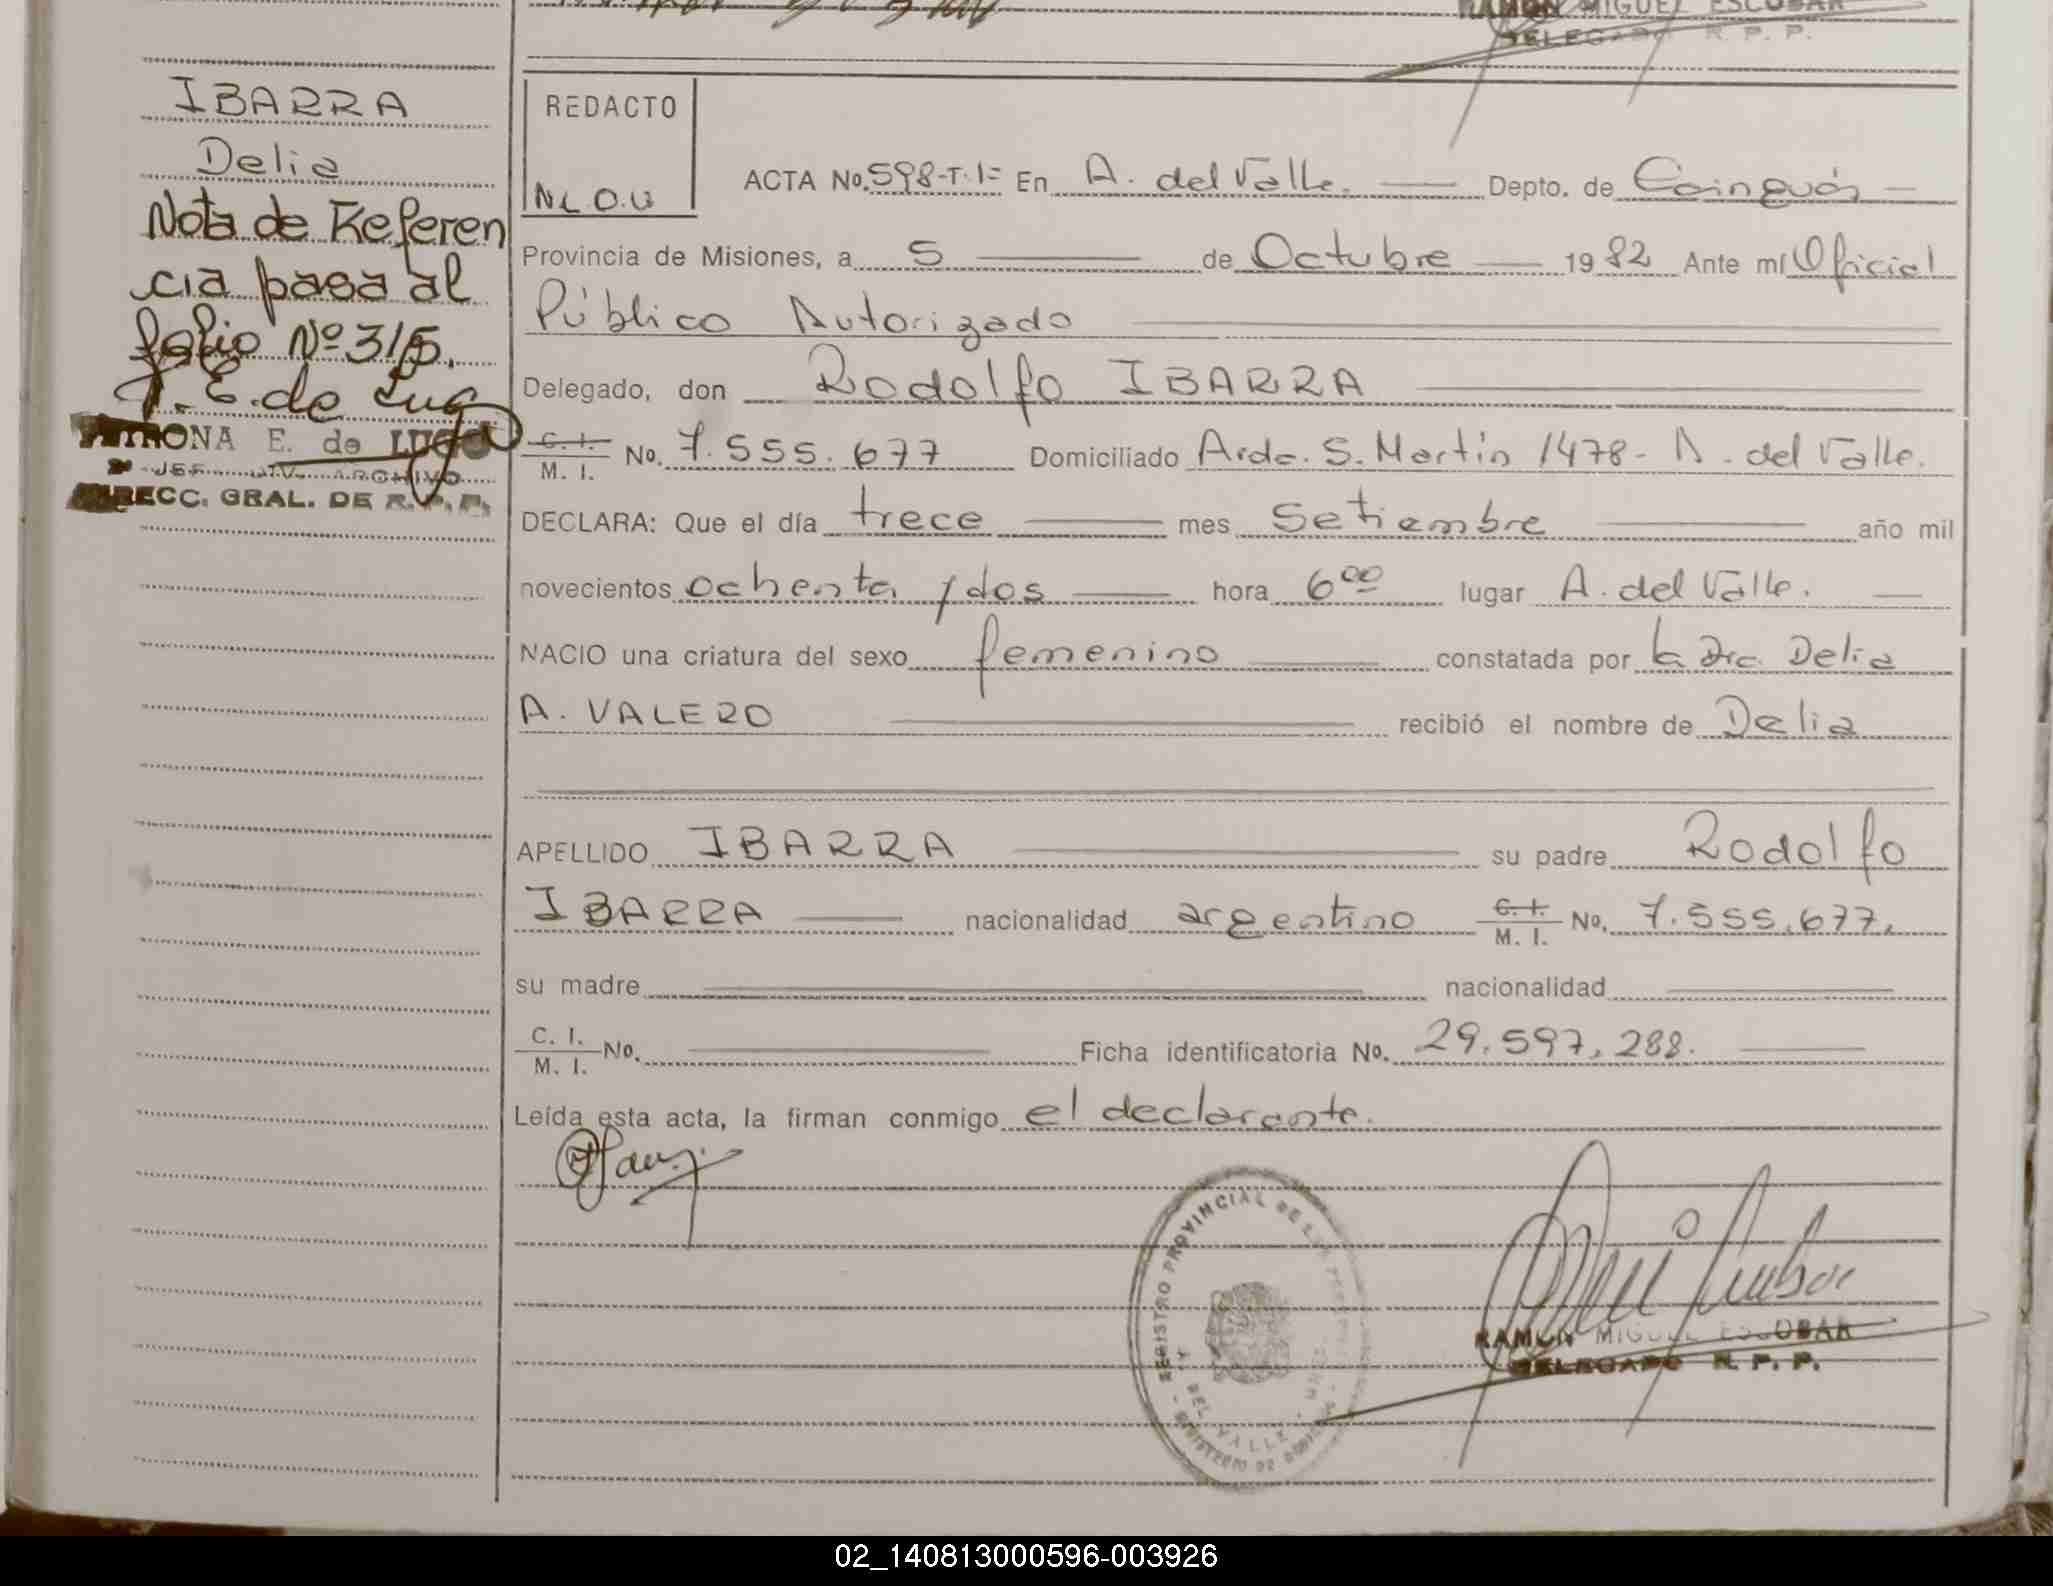 RAMON MIGUEL ESCOBAR
DELEGADO R. P. P.
IBARRA
Delia
Nota de Referen
cia pasa al
folio Nº 315.
P. E. de Lugo
PETRONA E. de LUGO
JEF. DIV. ARCHIVO
DIRECC. GRAL. DE R. P. P.
REDACTO
ACTA No. 598-T.1= En A. del Valle. Depto. de Cainguás
Provincia de Misiones, a 5 de Octubre 1982 Ante mí Oficial
Público Autorizado
Delegado, don Rodolfo IBARRA
C. I.
M. I. No. 7.555.677 Domiciliado Avda. S. Martín 1478- A. del Valle.
DECLARA: Que el día trece mes setiembre año mil
novecientos ochenta y dos hora 6⁰⁰ lugar A. del Valle.
NACIO una criatura del sexo femenino constatada por la Dra. Delia
A. VALERO recibió el nombre de Delia
APELLIDO IBARRA su padre Rodolfo
IBARRA nacionalidad argentino C. I.
M. I. No. 7.555.677,
su madre nacionalidad
C. I.
M. I. No. Ficha identificatoria No. 29.597.288.
Leída esta acta, la firman conmigo el declarante.
REGISTRO PROVINCIAL DE LAS PERSONAS
DEL VALLE
RAMON MIGUEL ESCOBAR
DELEGADO R. P. P.
02_140813000596-003926